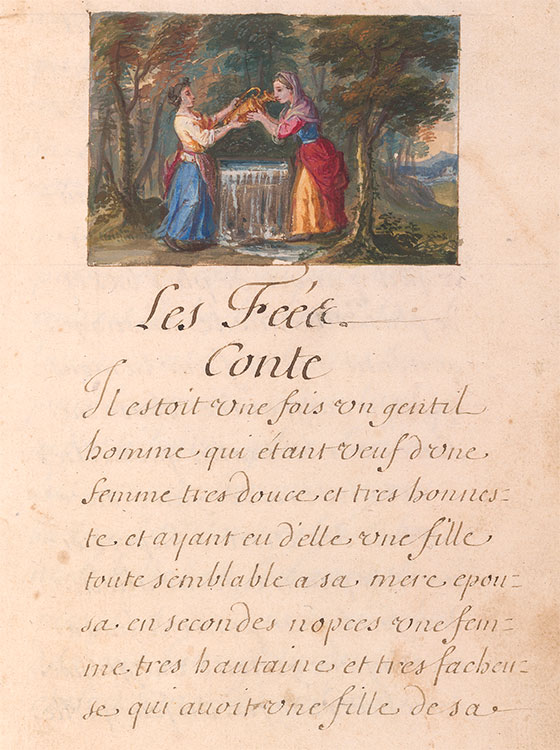 Les Fées.
Conte
Il estoit vne fois vn gentil
homme qui étant veuf d'vne
femme tres douce et tres honnes-
te et ayant eu d'elle vne fille
toute semblable a sa mere epou-
sa en secondes nopces vne fem-
me tres hautaine et tres facheu-
se qui auoit vne fille de sa